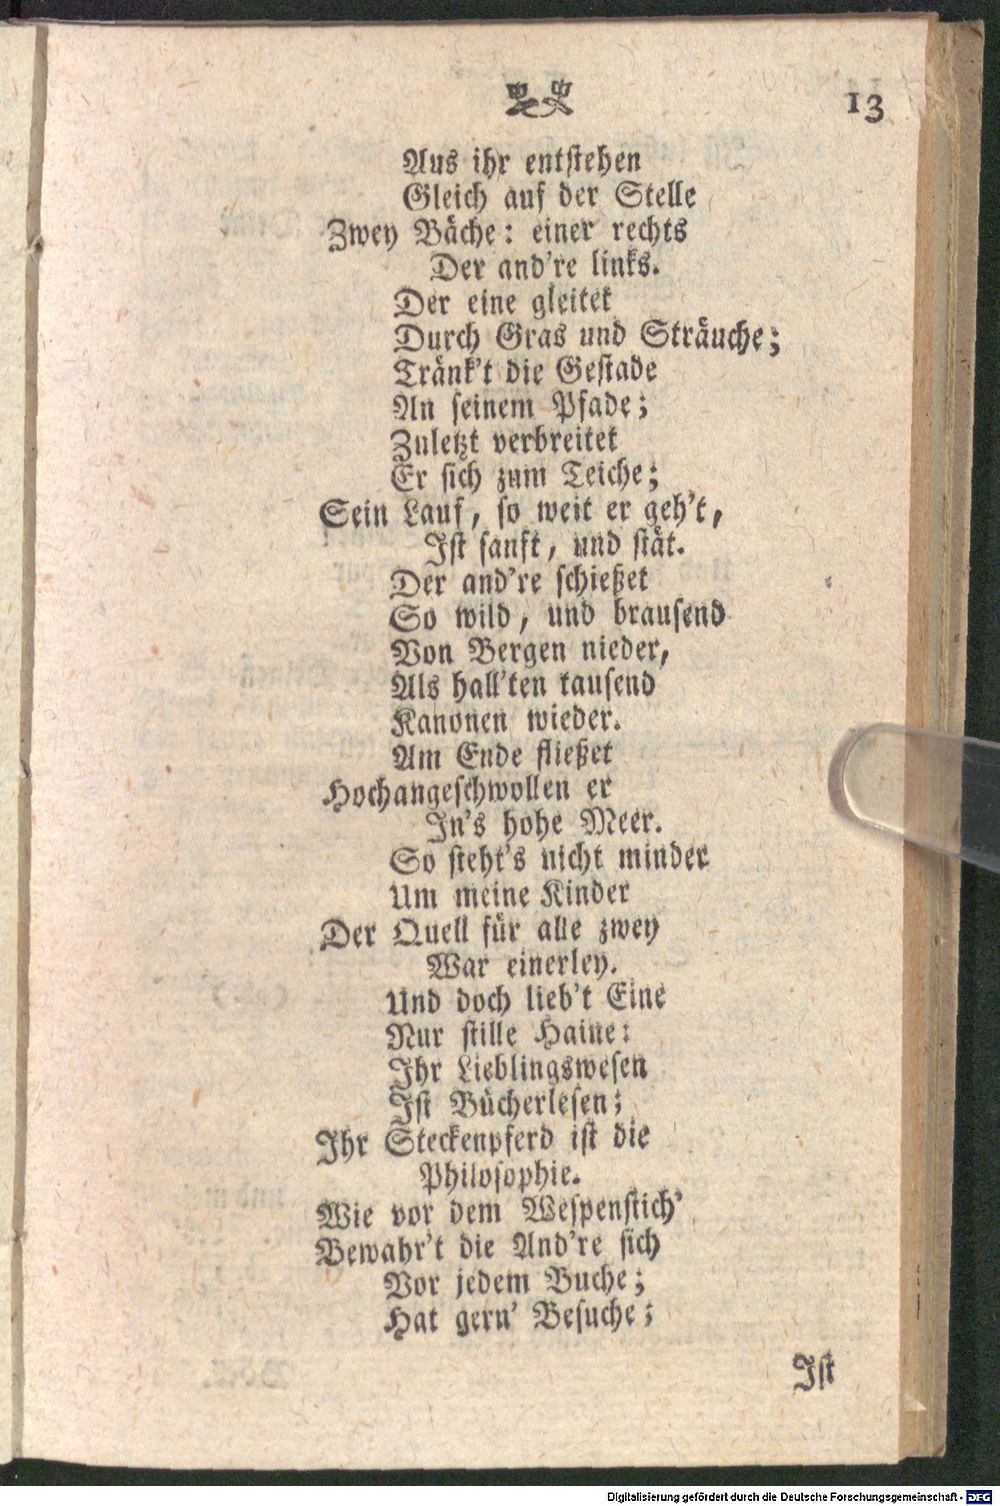 13
Aus ihr entstehen
Gleich auf der Stelle
Zwey Bäche: einer rechts
Der and're links.
Der eine gleitet
Durch Gras und Sträuche;
Tränk't die Gestade
An seinem Pfade;
Zuletzt verbreitet
Er sich zum Teiche;
Sein Lauf, so weit er geh't,
Ist sanft, und stät.
Der and're schießet
So wild, und brausend
Von Bergen nieder,
Als hall'ten tausend
Kanonen wieder.
Am Ende fließet
Hochangeschwollen er
In's hohe Meer.
So steht's nicht minder
Um meine Kinder
Der Quell für alle zwey
War einerley.
Und doch lieb't Eine
Nur stille Haine:
Ihr Lieblingswesen
Ist Bücherlesen;
Ihr Steckenpferd ist die
Philosophie.
Wie vor dem Wespenstich'
Bewahr't die And're sich
Vor jedem Buche;
Hat gern' Besuche;
Ist
Digitalisierung gefördert durch die Deutsche Forschungsgemeinschaft - DFG